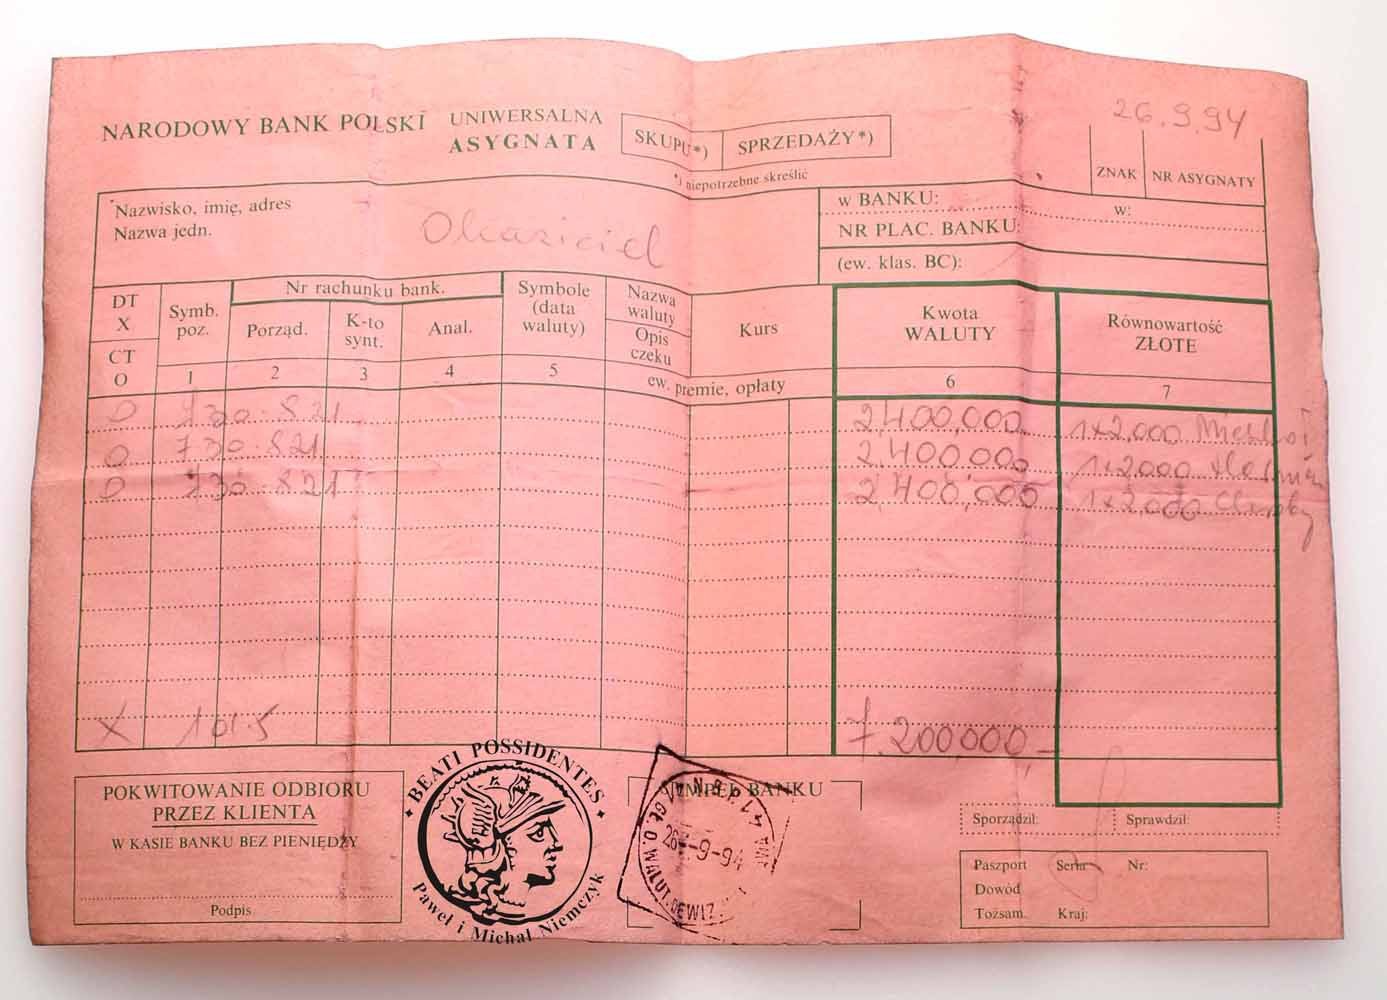 26.9.94
NARODOWY BANK POLSKI
UNIWERSALNA
ASYGNATA
SKUPU*)
SPRZEDAŻY*)
*) niepotrzebne skreślić
ZNAK
NR ASYGNATY
Nazwisko, imię, adres
Nazwa jedn.
Okaziciel
w BANKU:
w:
NR PLAC. BANKU:
(ew. klas. BC):
DT
X
CT
O
Symb.
poz.
Nr rachunku bank.
Porząd.
K-to
synt.
Anal.
Symbole
(data
waluty)
Nazwa
waluty
Opis
czeku
Kurs
ew. premie, opłaty
Kwota
WALUTY
Równowartość
ZŁOTE
1 2 3 4 5 6 7
O 730-821 2,400,000 1x2,000
O 730-821 2,400,000 1x2000
O 730-821 2,400,000 1x2,000
X 101-5 7.200,000,-
POKWITOWANIE ODBIORU
PRZEZ KLIENTA
W KASIE BANKU BEZ PIENIĘDZY
Podpis
BEATI POSSIDENTES
Paweł i Michał Niemczyk
STEMPEL BANKU
N.B.P.
26-9-94
O. WALUT. DEWIZ.
Sporządził:
Sprawdził:
Paszport Seria Nr:
Dowód
Tożsam. Kraj: